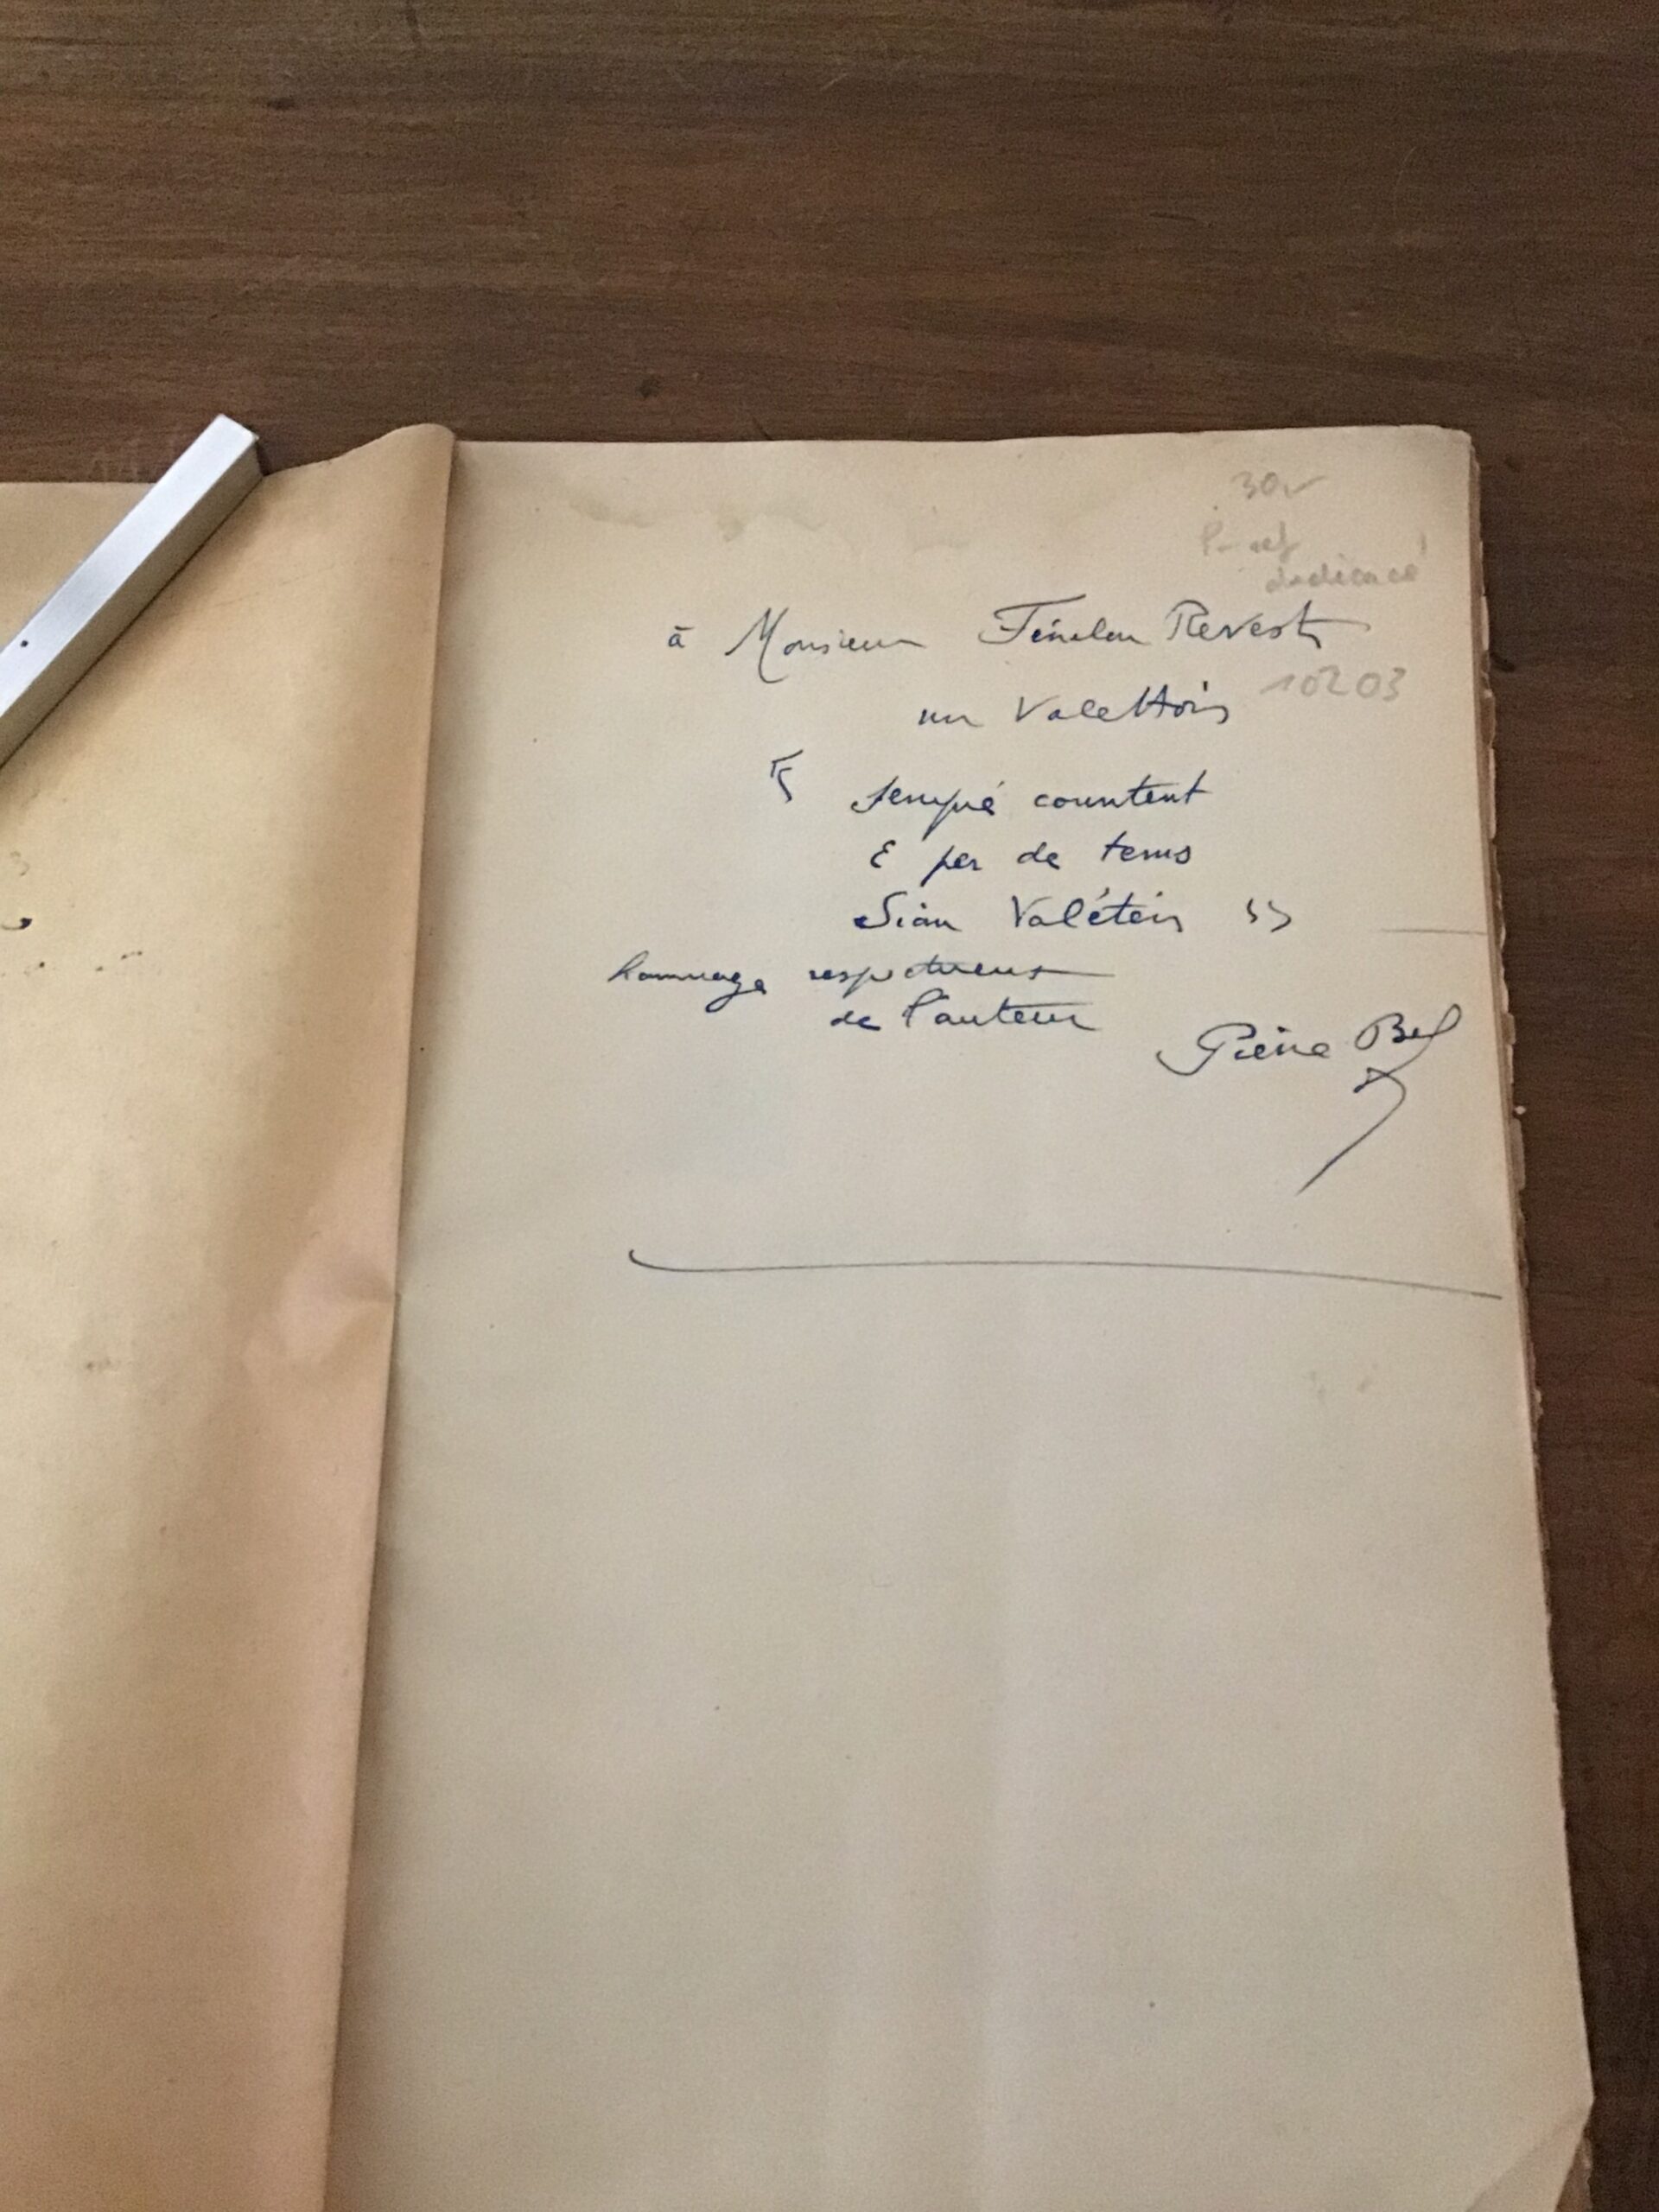 30
dédicacé
à Monsieur Fénelon Revest
10203
un Valettois
« sempré countent
E per de tems
Sian Valéten »
hommage respectueux
de l'auteur
Pierre Bel